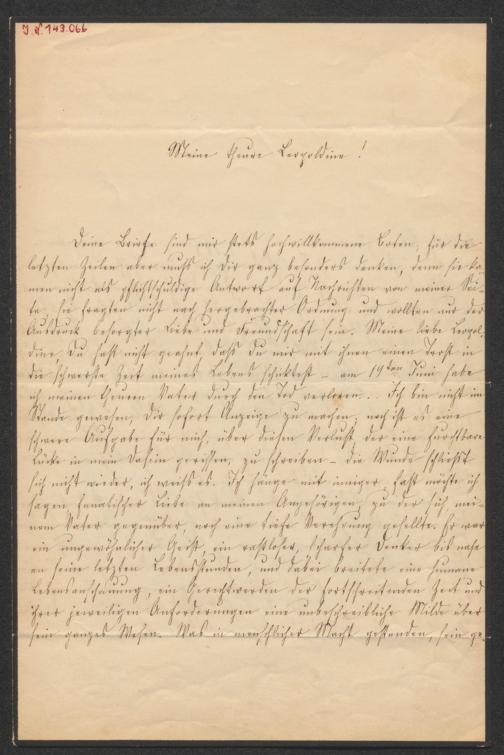 J.N. 143.066
Meine theure Leopoldine!
Deine Briefe sind mir stets hochwillkommene Boten; für die
letzten Zeilen aber muß ich Dir ganz besonders danken, denn sie ka-
men nicht als pflichtschuldige Antwort auf Nachrichten von meiner Sei-
te, sie fragten nicht nach hergebrachter Ordnung und wollten nur der
Ausdruck besorgter Liebe und Freundschaft sein. Meine liebe Leopol-
dine, Du hast nicht geahnt, daß Du mir mit ihnen einen Trost in
die schwerste Zeit meines Lebens schicktest – am 19ten Juni habe
ich meinen theuren Vater durch den Tod verloren... Ich bin nicht im
Stande gewesen, Dir sofort Anzeige zu machen, noch ist es eine
schwere Aufgabe für mich, über diesen Verlust, der eine furchtbare
Lücke in mein Dasein gerissen, zu schreiben – die Wunde schließt
sich nicht wieder, ich weiß es. Ich hänge mit inniger, fast möchte ich
sagen, fanatischer Liebe an meinen Angehörigen, zu der sich, mei-
nem Vater gegenüber, noch eine tiefe Verehrung gesellte. Er war
ein ungewöhnlicher Geist, ein rastloser, scharfer Denker bis nahe
an seine letzten Lebensstunden, und dabei breitete eine humane
Lebensanschauung, ein Gerechtwerden der fortschreitenden Zeit und
ihrer jeweiligen Anforderungen eine unbeschreibliche Milde über
sein ganzes Wesen. Was in menschlicher Macht gestanden, sein ge-